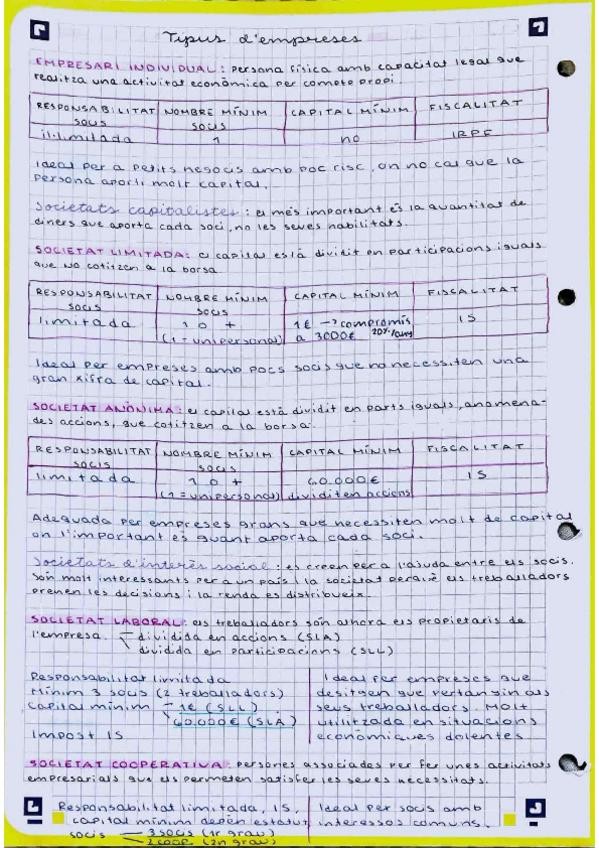 Tipus d'empreses
EMPRESARI INDIVIDUAL: persona física amb capacitat legal que
realitza una activitat econòmica per compte propi.
RESPONSABILITAT SOCIS | NOMBRE MÍNIM SOCIS | CAPITAL MÍNIM | FISCALITAT
il·limitada | 1 | no | IRPF
Ideal per a petits negocis amb poc risc, on no cal que la
persona aporti molt capital.
Societats capitalistes: el més important és la quantitat de
diners que aporta cada soci, no les seves habilitats.
SOCIETAT LIMITADA: el capital està dividit en participacions iguals
que NO cotitzen a la borsa.
RESPONSABILITAT SOCIS | NOMBRE MÍNIM SOCIS | CAPITAL MÍNIM | FISCALITAT
limitada | 1 o + | 1€ → compromís | IS
(1 = unipersonal) | a 3000€ 20%/any
Ideal per empreses amb pocs socis que no necessiten una
gran xifra de capital.
SOCIETAT ANÒNIMA: el capital està dividit en parts iguals, anomena-
des accions, que cotitzen a la borsa.
RESPONSABILITAT SOCIS | NOMBRE MÍNIM SOCIS | CAPITAL MÍNIM | FISCALITAT
limitada | 1 o + | 60.000€ | IS
(1 = unipersonal) | dividit en accions
Adequada per empreses grans que necessiten molt de capital
on l'important és quant aporta cada soci.
Societats d'interès social: es creen per a l'ajuda entre els socis.
Són molt interessants per a un país i la societat perquè els treballadors
prenen les decisions i la renda es distribueix.
SOCIETAT LABORAL: els treballadors són alhora els propietaris de
l'empresa. dividida en accions (SLA)
dividida en participacions (SLL)
Responsabilitat limitada
Mínim 3 socis (2 treballadors)
Capital mínim 1€ (SLL)
60.000€ (SLA)
Impost IS
Ideal per empreses que
desitgen que vertan
seus treballadors. Molt
utilitzada en situacions
econòmiques dolentes.
SOCIETAT COOPERATIVA: persones associades per fer unes activitats
empresarials que els permeten satisfer les seves necessitats.
Responsabilitat limitada, IS,
capital mínim depèn estatut,
socis 3 socis (1r grau)
2 coop (2n grau)
Ideal per socis amb
interessos comuns.